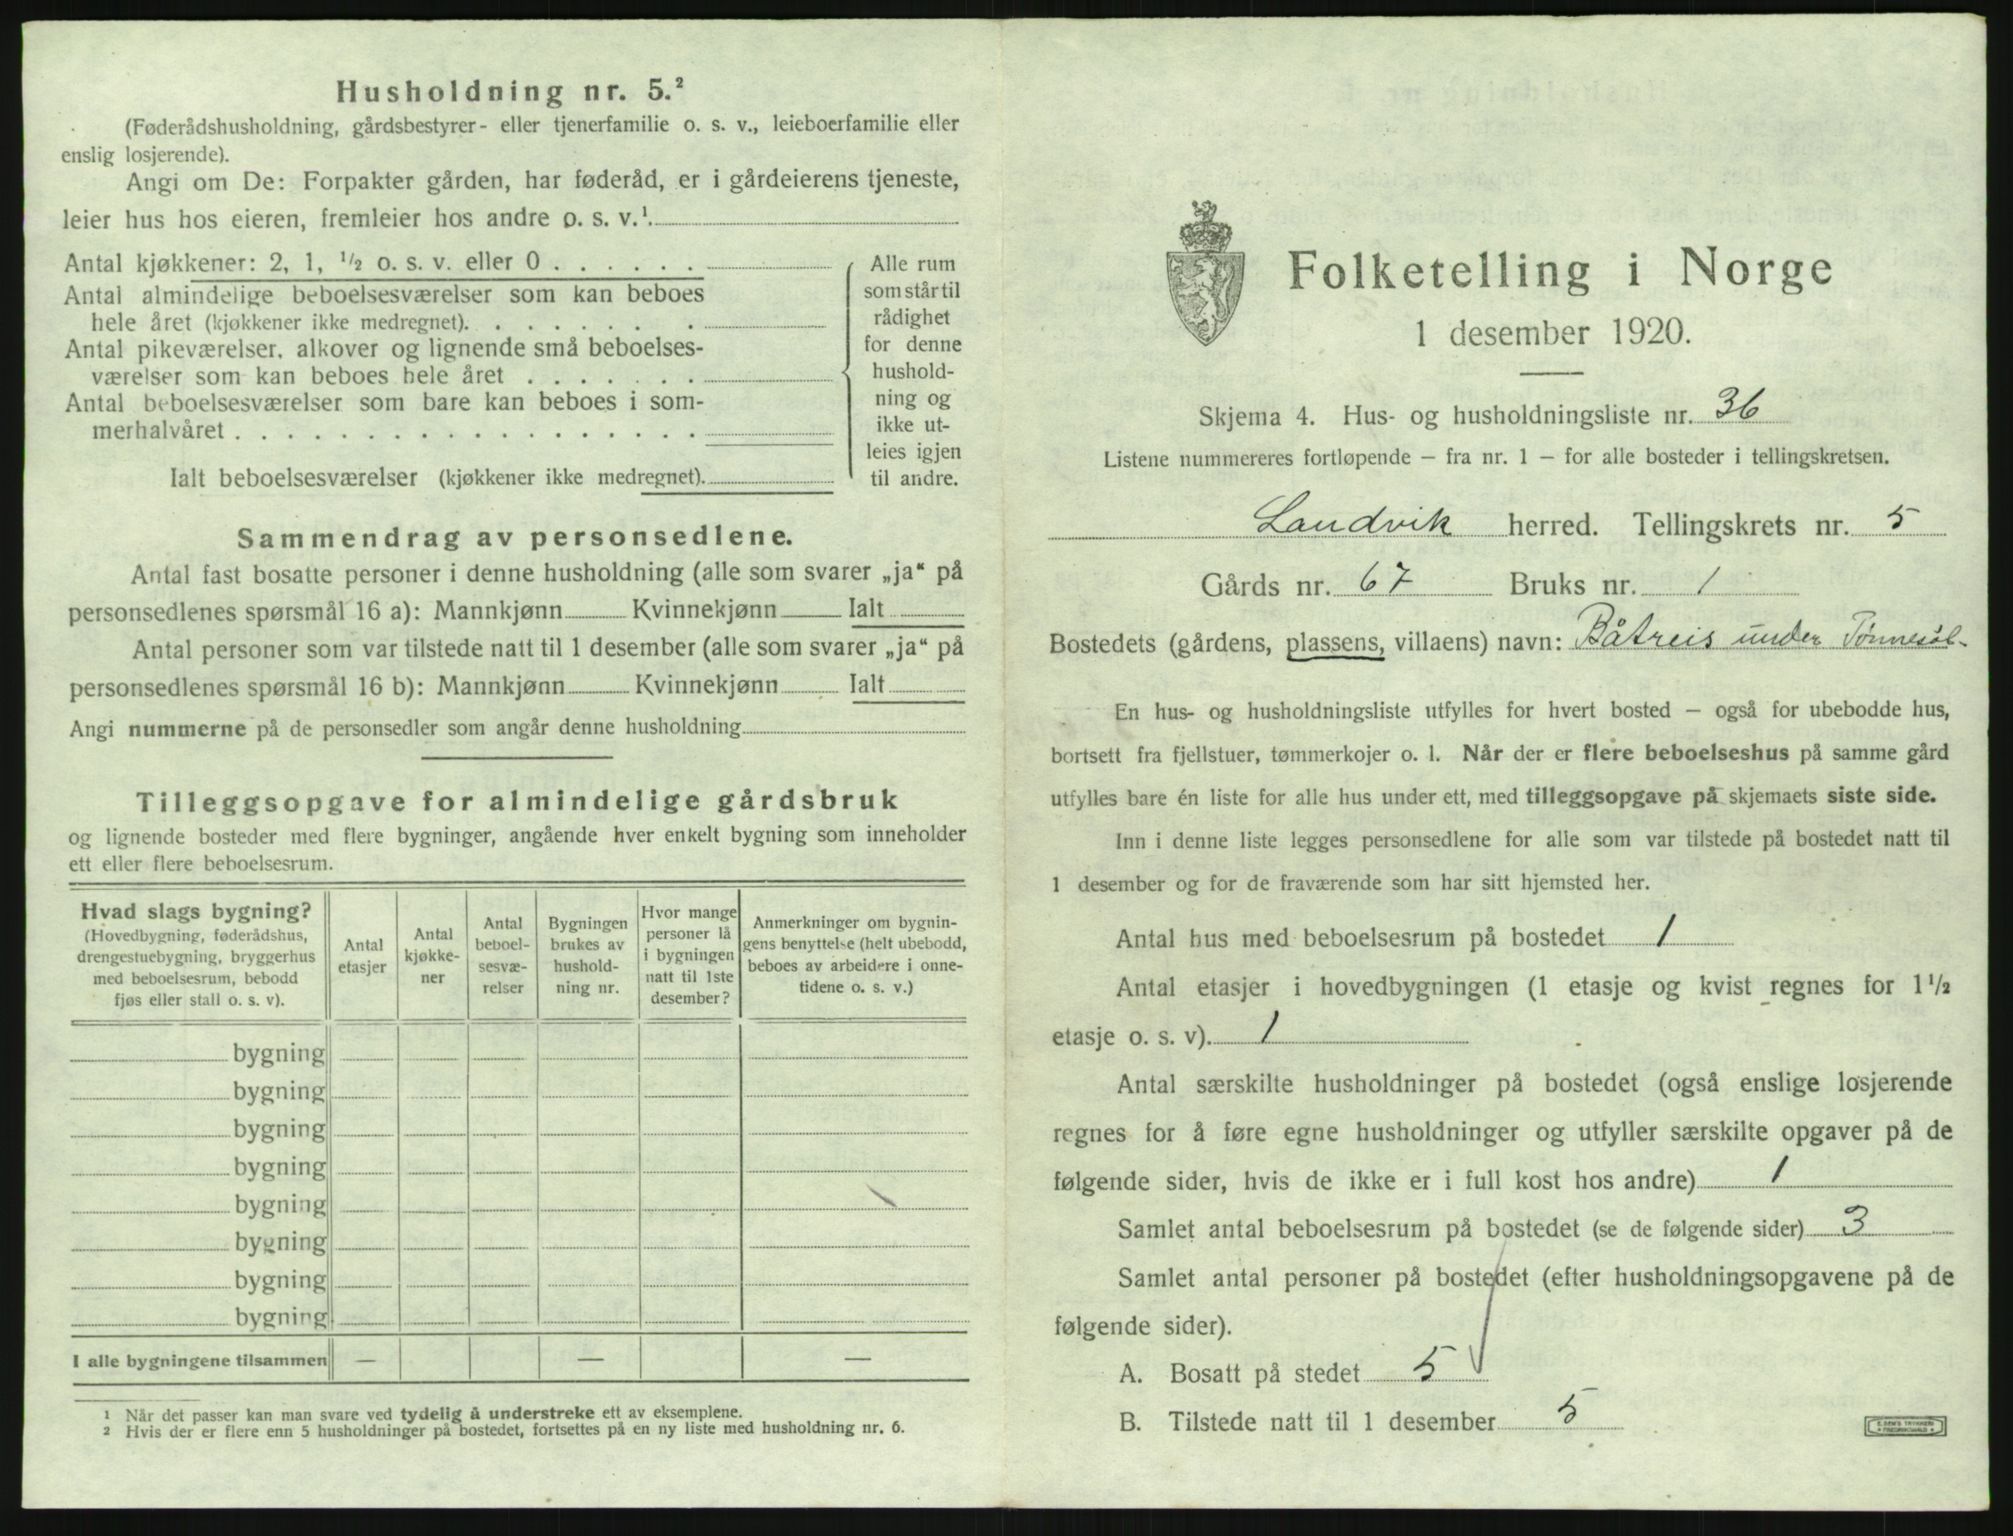 Husholdning nr. 5.²
(Føderådshusholdning, gårdsbestyrer- eller tjenerfamilie o. s. v., leieboerfamilie eller
enslig losjerende).
Angi om De: Forpakter gården, har føderåd, er i gårdeierens tjeneste,
leier hus hos eieren, fremleier hos andre o. s. v.¹
Antal kjøkkener: 2, 1, ½ o. s. v. eller 0 . . . . . .
Antal almindelige beboelsesværelser som kan beboes
hele året (kjøkkener ikke medregnet). . . . . . . .
Antal pikeværelser, alkover og lignende små beboelses-
værelser som kan beboes hele året . . . . . . .
Antal beboelsesværelser som bare kan beboes i som-
merhalvåret . . . . . . . . . . . . . . . . . .
Ialt beboelsesværelser (kjøkkener ikke medregnet).
Alle rum
som står til
rådighet
for denne
hushold-
ning og
ikke ut-
leies igjen
til andre.
Sammendrag av personsedlene.
Antal fast bosatte personer i denne husholdning (alle som svarer „ja“ på
personsedlenes spørsmål 16 a): Mannkjønn Kvinnekjønn Ialt
Antal personer som var tilstede natt til 1 desember (alle som svarer „ja“ på
personsedlenes spørsmål 16 b): Mannkjønn Kvinnekjønn Ialt
Angi nummerne på de personsedler som angår denne husholdning
Tilleggsopgave for almindelige gårdsbruk
og lignende bosteder med flere bygninger, angående hver enkelt bygning som inneholder
ett eller flere beboelsesrum.
Hvad slags bygning?
(Hovedbygning, føderådshus,
drengestuebygning, bryggerhus
med beboelsesrum, bebodd
fjøs eller stall o. s. v).
Antal
etasjer
Antal
kjøkke-
ner
Antal
beboel-
sesvæ-
relser
Bygningen
brukes av
hushold-
ning nr.
Hvor mange
personer lå
i bygningen
natt til 1ste
desember?
Anmerkninger om bygnin-
gens benyttelse (helt ubebodd,
beboes av arbeidere i onne-
tidene o. s. v.)
bygning
bygning
bygning
bygning
bygning
bygning
bygning
bygning
I alle bygningene tilsammen — — —
¹ Når det passer kan man svare ved tydelig å understreke ett av eksemplene.
² Hvis der er flere enn 5 husholdninger på bostedet, fortsettes på en ny liste med husholdning nr. 6.
Folketelling i Norge
1 desember 1920.
Skjema 4. Hus- og husholdningsliste nr. 36
Listene nummereres fortløpende – fra nr. 1 – for alle bosteder i tellingskretsen.
Landvik herred. Tellingskrets nr. 5
Gårds nr. 67 Bruks nr. 1
Bostedets (gårdens, plassens, villaens) navn: Båtreis under Tønnesøl-
En hus- og husholdningsliste utfylles for hvert bosted – også for ubebodde hus,
bortsett fra fjellstuer, tømmerkojer o. l. Når der er flere beboelseshus på samme gård
utfylles bare én liste for alle hus under ett, med tilleggsopgave på skjemaets siste side.
Inn i denne liste legges personsedlene for alle som var tilstede på bostedet natt til
1 desember og for de fraværende som har sitt hjemsted her.
Antal hus med beboelsesrum på bostedet 1
Antal etasjer i hovedbygningen (1 etasje og kvist regnes for 1½
etasje o. s. v). 1
Antal særskilte husholdninger på bostedet (også enslige losjerende
regnes for å føre egne husholdninger og utfyller særskilte opgaver på de
følgende sider, hvis de ikke er i full kost hos andre) 1
Samlet antal beboelsesrum på bostedet (se de følgende sider) 3
Samlet antal personer på bostedet (efter husholdningsopgavene på de
følgende sider).
A. Bosatt på stedet 5
B. Tilstede natt til 1 desember 5